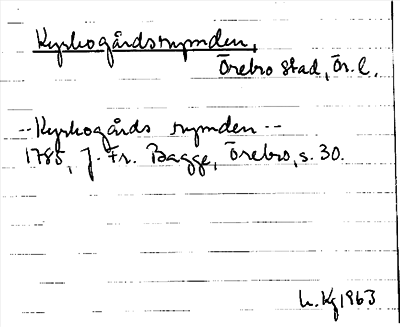 Kyrkogårdsrymden,
Örebro stad, Ör. l.
-- Kyrkogårds rymden --
1785, J. Fr. Bagge, Örebro, s. 30.
1963